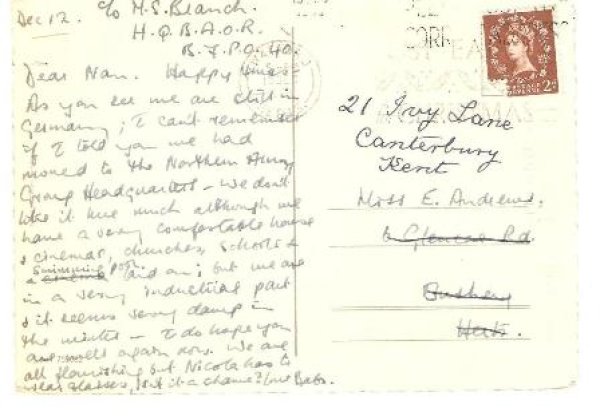 Dec 12. c/o M.S. Branch
H.Q. B.A.O.R.
B.F.P.O. 40.
Dear Nan. Happy Xmas
As you see we are still in
Germany; I can't remember
if I told you we had
moved to the Northern Army
Group Headquarters - we don't
like it here much although we
have a very comfortable house
& cinemas, churches, schools &
a swimming pool laid on; but we are
in a very industrial part
& it seems very damp in
the winter - I do hope you
are well again now. We are
all flourishing but Nicola has to
wear glasses, isn't it a shame? love Babs.
21 Ivy Lane
Canterbury
Kent
Miss E. Andrews.
6 Glencoe Rd.
Bushey
Herts.
POSTAGE
REVENUE
2D